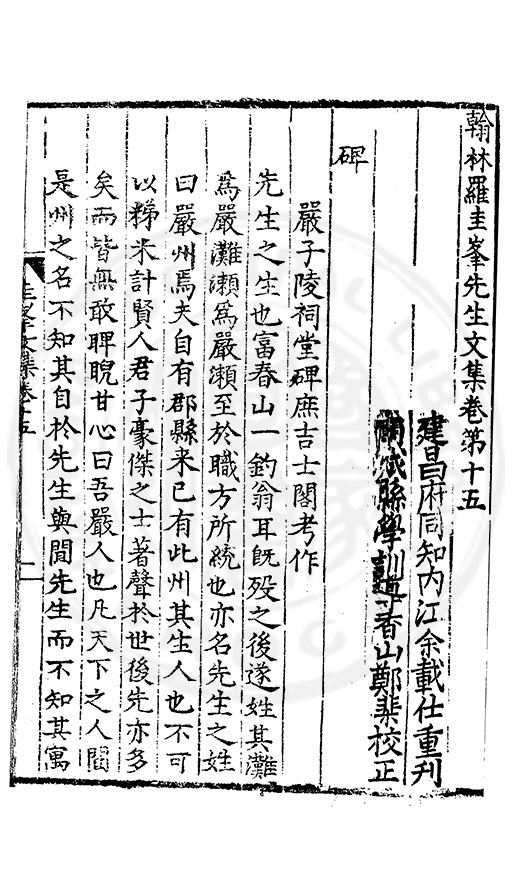 翰林羅圭峯先生文集卷第十五
建昌府同知內江余載仕重刊
縣學訓導香山鄭棐校正
碑
嚴子陵祠堂碑庶吉士閣考作
先生之生也富春山一釣翁耳旣殁之後遂姓其灘
爲嚴灘瀨爲嚴瀨至於職方所統也亦名先生之姓
曰嚴州焉夫自有郡縣来已有此州其生人也不可
以稊米計賢人君子豪傑之士著聲於世後先亦多
矣而皆無敢睥睨甘心曰吾嚴人也凡天下之人聞
是州之名不知其自於先生與聞先生而不知其寓
圭峯文集卷十五
一